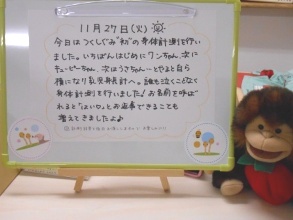 11月27日(火)
今日はつくしぐみ"初"の身体計測を行い
ました。いちばんはじめにワンちゃん、次に
チューピーちゃん、次はうさちゃん…とやると自ら
種になり乳児用計へ。誰も泣くことなく
身体計測を行いました♪お名前を呼ば
れると「はい〇」とお返事できることも
増えてきましたよ♪